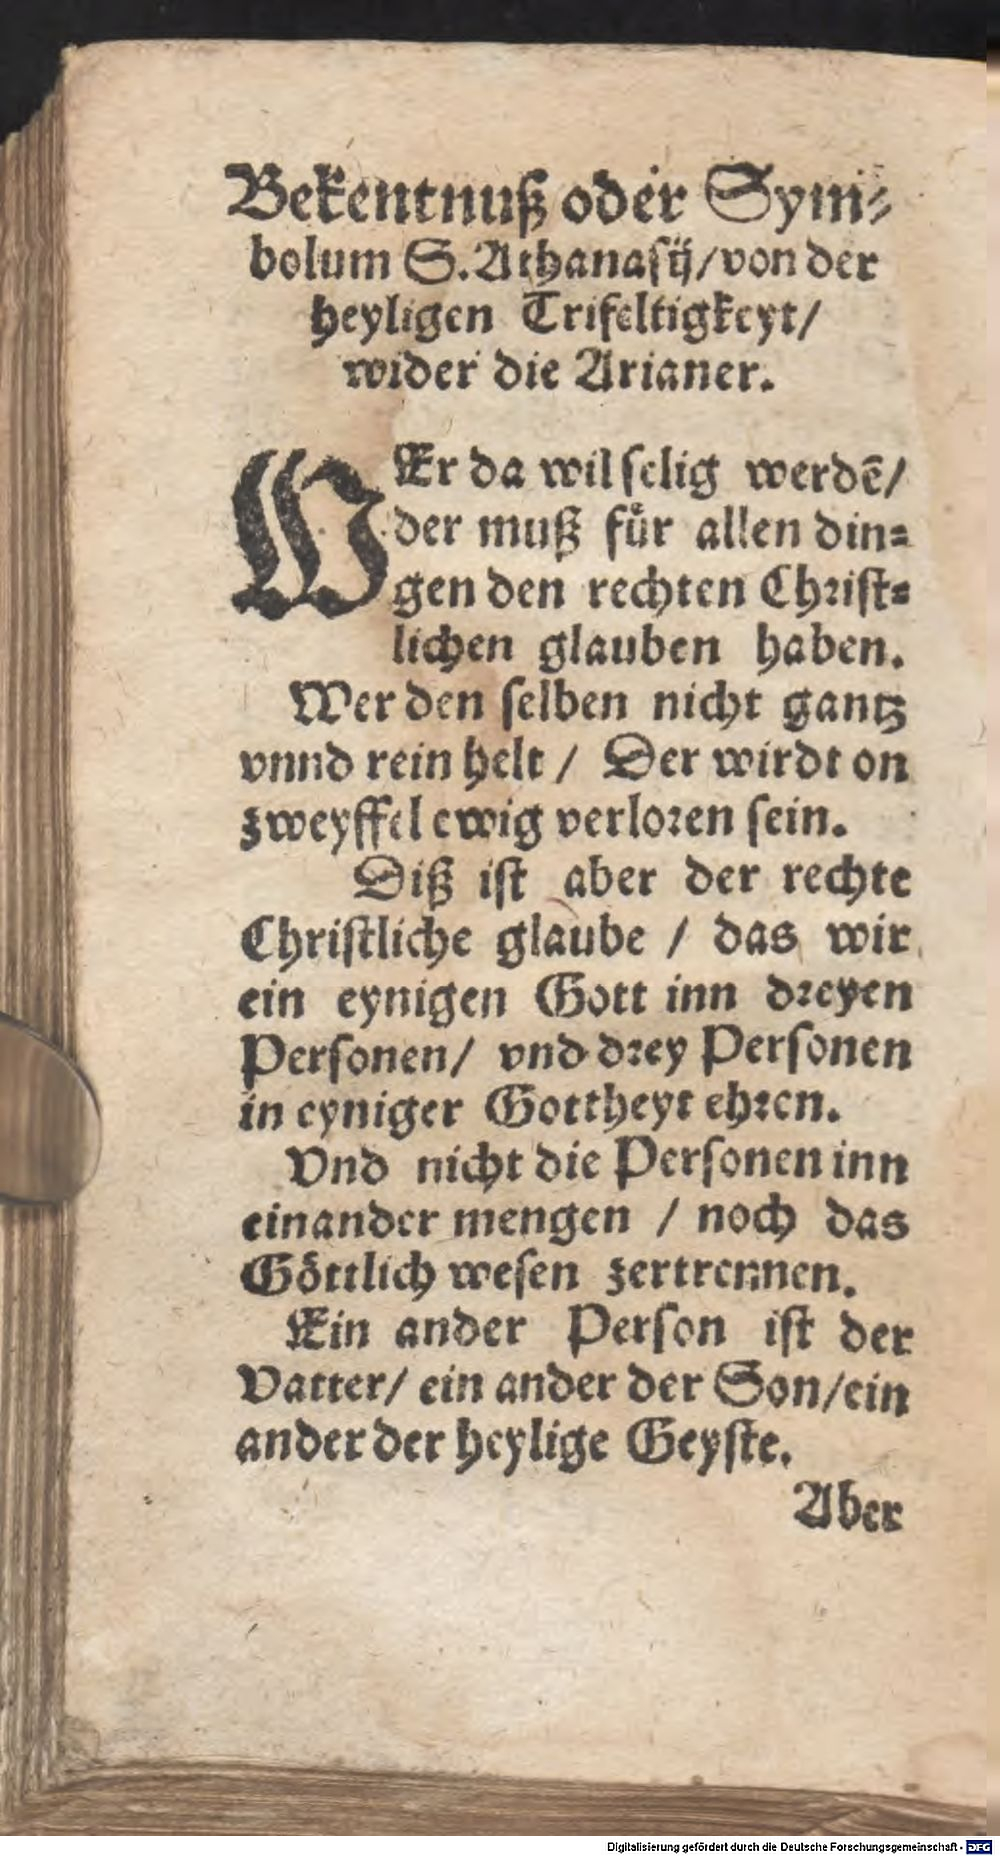 Bekentnuß oder Sym⸗
bolum S. Athanasij/ von der
heyligen Trifeltigkeyt/
wider die Arianer.
WEr da wil ſelig werdē/
der muß fuͤr allen din⸗
gen den rechten Chꝛiſt⸗
lichen glauben haben.
Wer den ſelben nicht gantz
vnnd rein helt / Der wirdt on
zweyffel ewig verloꝛen ſein.
Diß iſt aber der rechte
Chriſtliche glaube / das wir
ein eynigen Gott inn dꝛeyen
Perſonen/ vnd dꝛey Perſonen
in eyniger Gottheyt ehꝛen.
Vnd nicht die Perſonen inn
einander mengen / noch das
Goͤttlich weſen zertrennen.
Ein ander Perſon iſt der
Vatter/ ein ander der Son/ein
ander der heylige Geyſte.
Aber
Digitalisierung gefördert durch die Deutsche Forschungsgemeinschaft - DFG